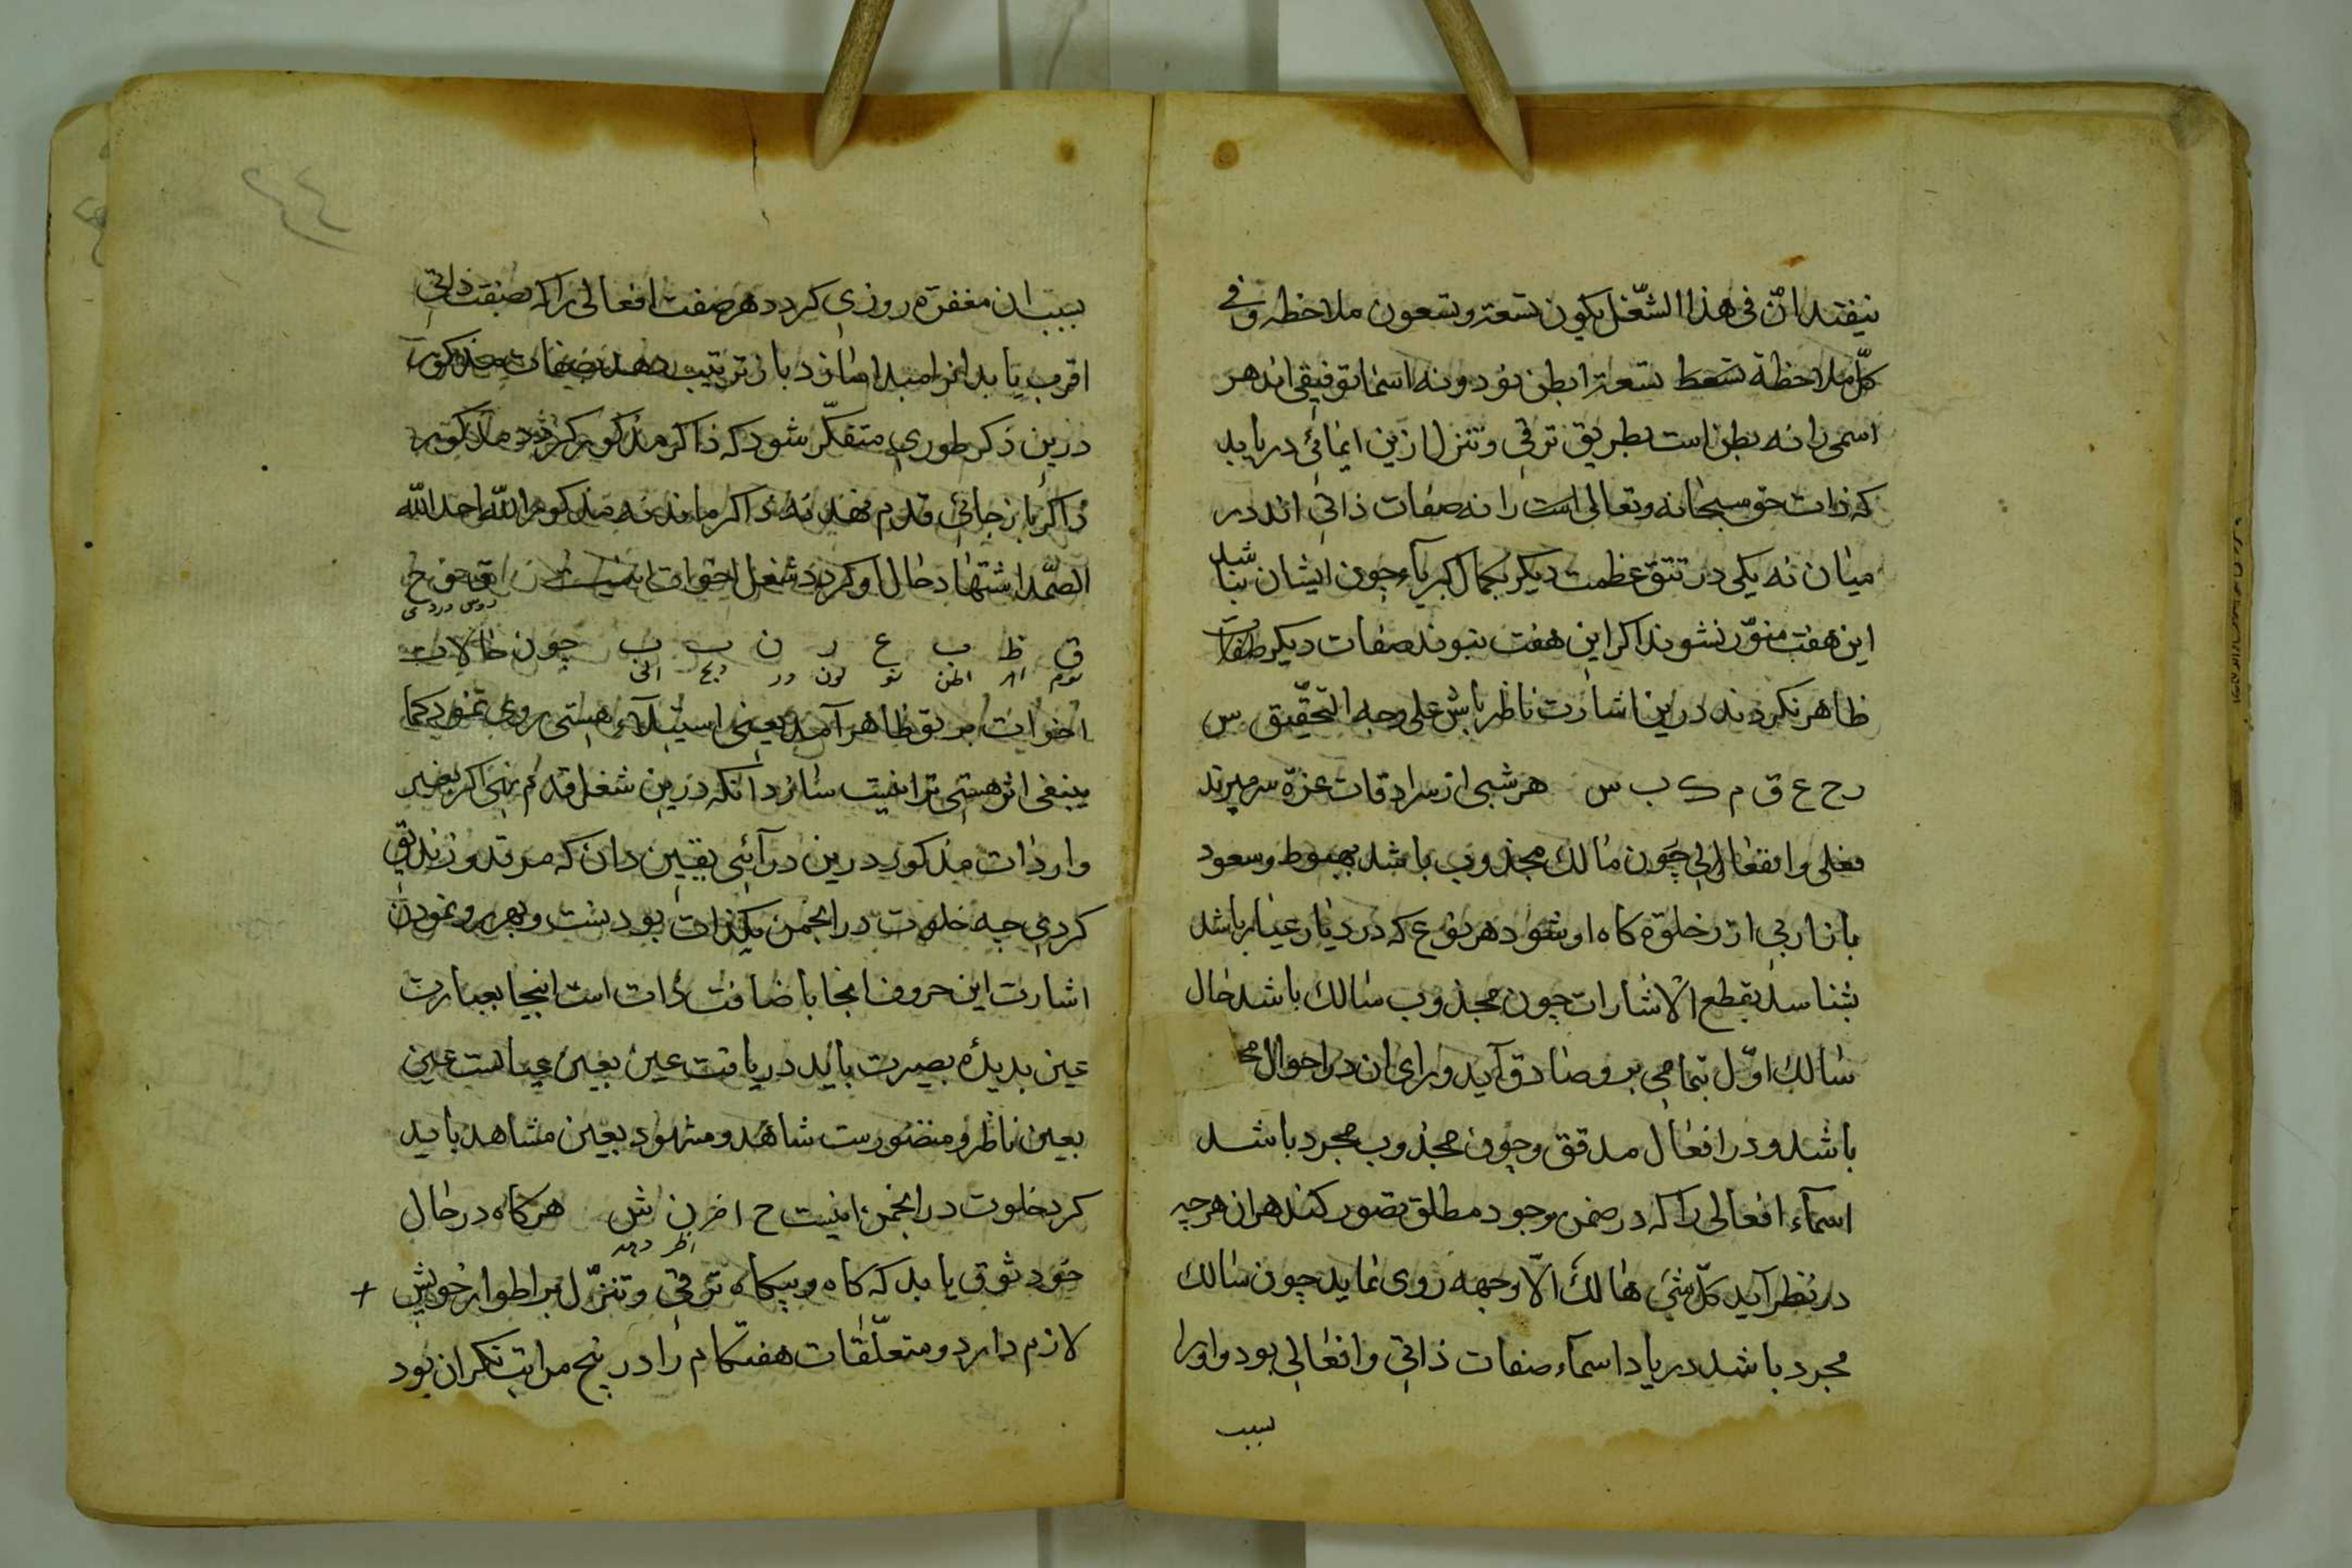 نیفتد انّ فی هذا الشّغل یکون تسعة وتسعون ملاخظه وفی
کلّ ملاحظة تسعة ابطن بود ونه اسما توفیقی اند هر
اسمی را نه بطن است بطریق ترقی وتنزل ازین ایمائی دریابد
که ذات حق سبحانه وتعالی است را نه صفات ذاتی اند در
میان نه یکی در تتق عظمت دیکر بجمال کبریآء چون ایشان نباشند
این هفت منوّر نشوند اکر این هفت نبوند صفات دیکر
ظاهر نکردند درین اشارت ناظر باش علی وجه التحقیق س
ر ح ع ق م ک ب س هر شبی از سرادقات عزة سر میزند
فعلی وانفعالی چون مالك مجذوب باشد بهبوط وسعود
باز اربی ارز خلوة کاه او شود هر نوع که در دیار عیار باشد
بشناسد بقطع الاشارات چون مجذوب سالك باشد حال
سالك اوّل بتمامی برو صادق آید ورای ان در احوال
باشد ودر افعال مدقق وچون مجذوب مجرد باشد
اسمآء افعالی را که در ضمن وجود مطلق تصور کند هران هرچه
در نظر آید کلّ شئ هالك الّا وجهه روی نماید چون سالك
مجرد باشد در یاد اسمآء صفات ذاتی وافعالی بود واورا
بسبب
٢٤
بسبب ان مغفرة روزی کردد هر صفت افعالی را که بصفت ذاتی
اقرب یابد ازامبدا سازد باز ترتیب دهد صفات مذکور
درین ذکر طوری متفکّر شود که ذاکر مذکور کردد ومذکور
ذاکر باز جائی قدم نهد نه ذاکر ماند نه مذکور الله احد الله
الصّمد اشتهاد حال او کردد شغل اخوات اینست
ق ظ ب ع ر ن ب ب چون حالات
اخوات بر تو ظاهر آمد یعنی استیلآء هستی روی نمود کما
ینبغی اثر هستی ترا نیست سازد آنکه درین شغل قدم نهی اکر بغیر
واردات مذکور درین درآئی یقین دان که مرتد وزندیق
کردی چه خلوت در انجمن یکذات بودنست وبهر رو نمودن
اشارت این حروف انجا باضافت ذات است اینجا بعبارت
عین بدیدهٔ بصیرت باید دریافت عین بعین عیانست عین
بعین ناظر ومنظورست شاهد ومشهود بعین مشاهد باید
کرد خلوت در انجمن اینست ح ا خ ر ن ش هرکاه در حال
خود ثوق یابد که کاه وبیکاه ترقی وتنزّل بر اطوار خویش +
لازم دارد ومتعلّقات هفتکام را در پنج مراتب نکران بود